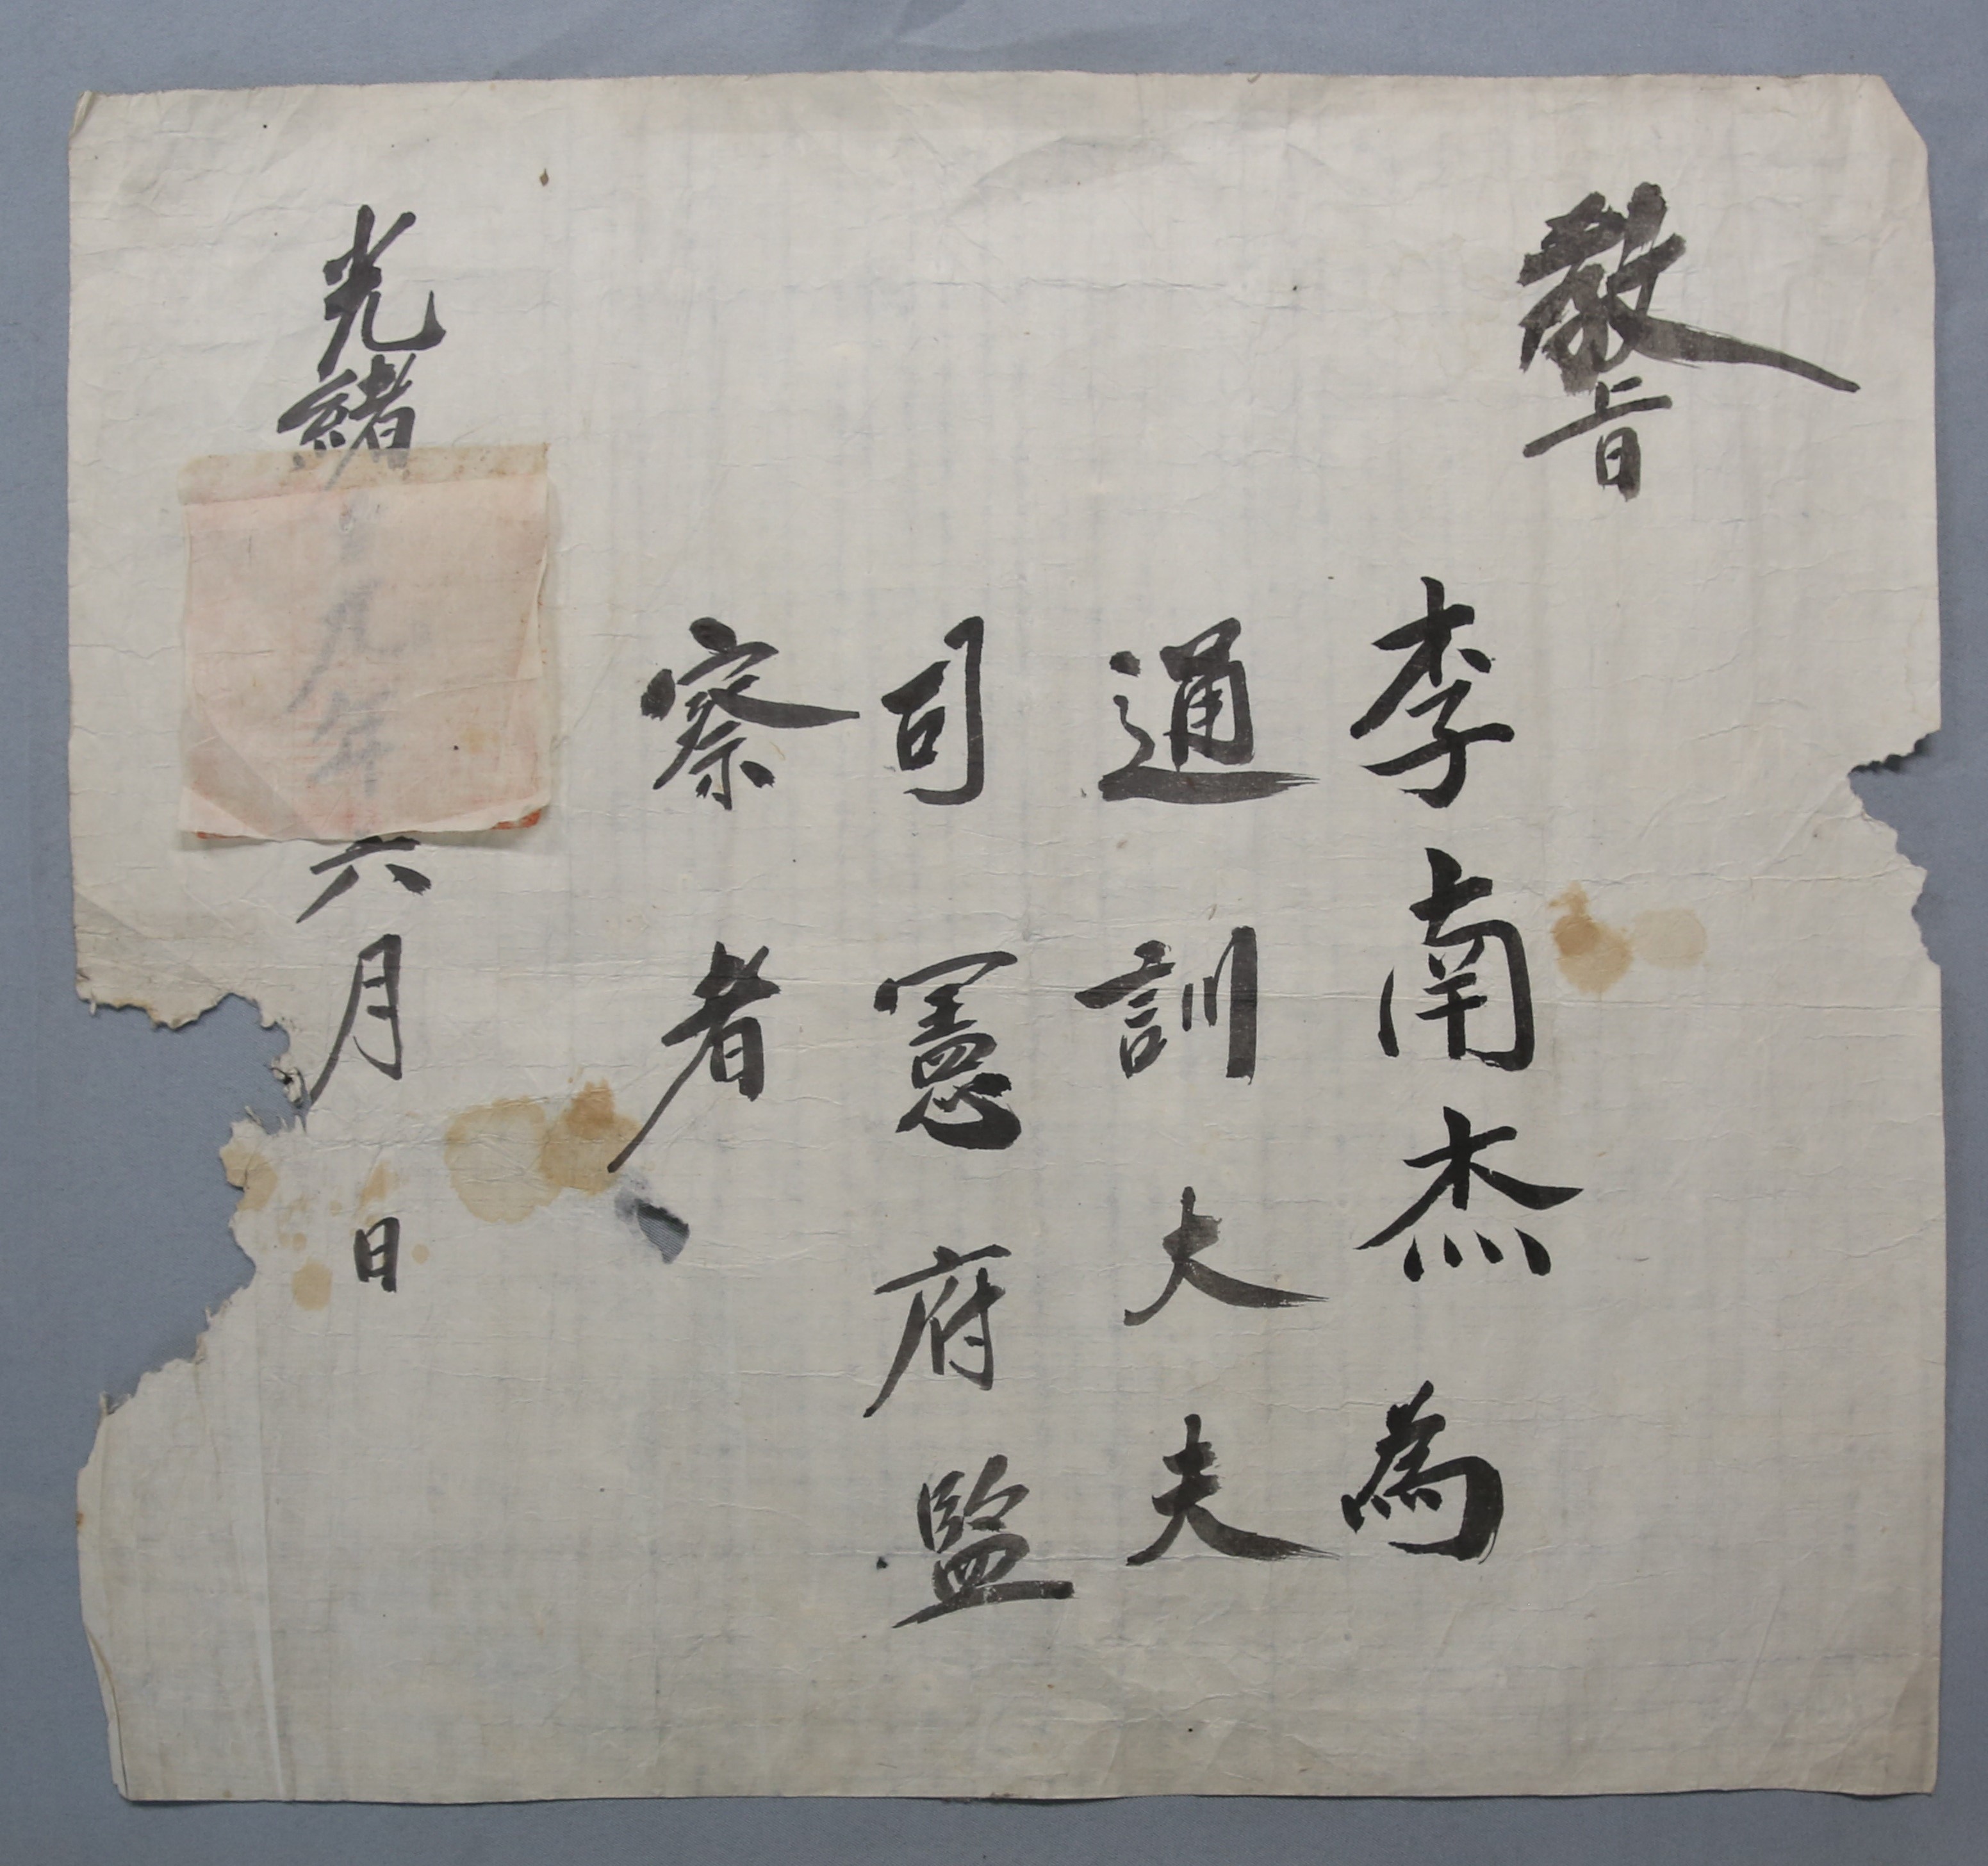 敎旨
李南杰為
通訓大夫
司憲府監
察者
光緖十九年六月 日